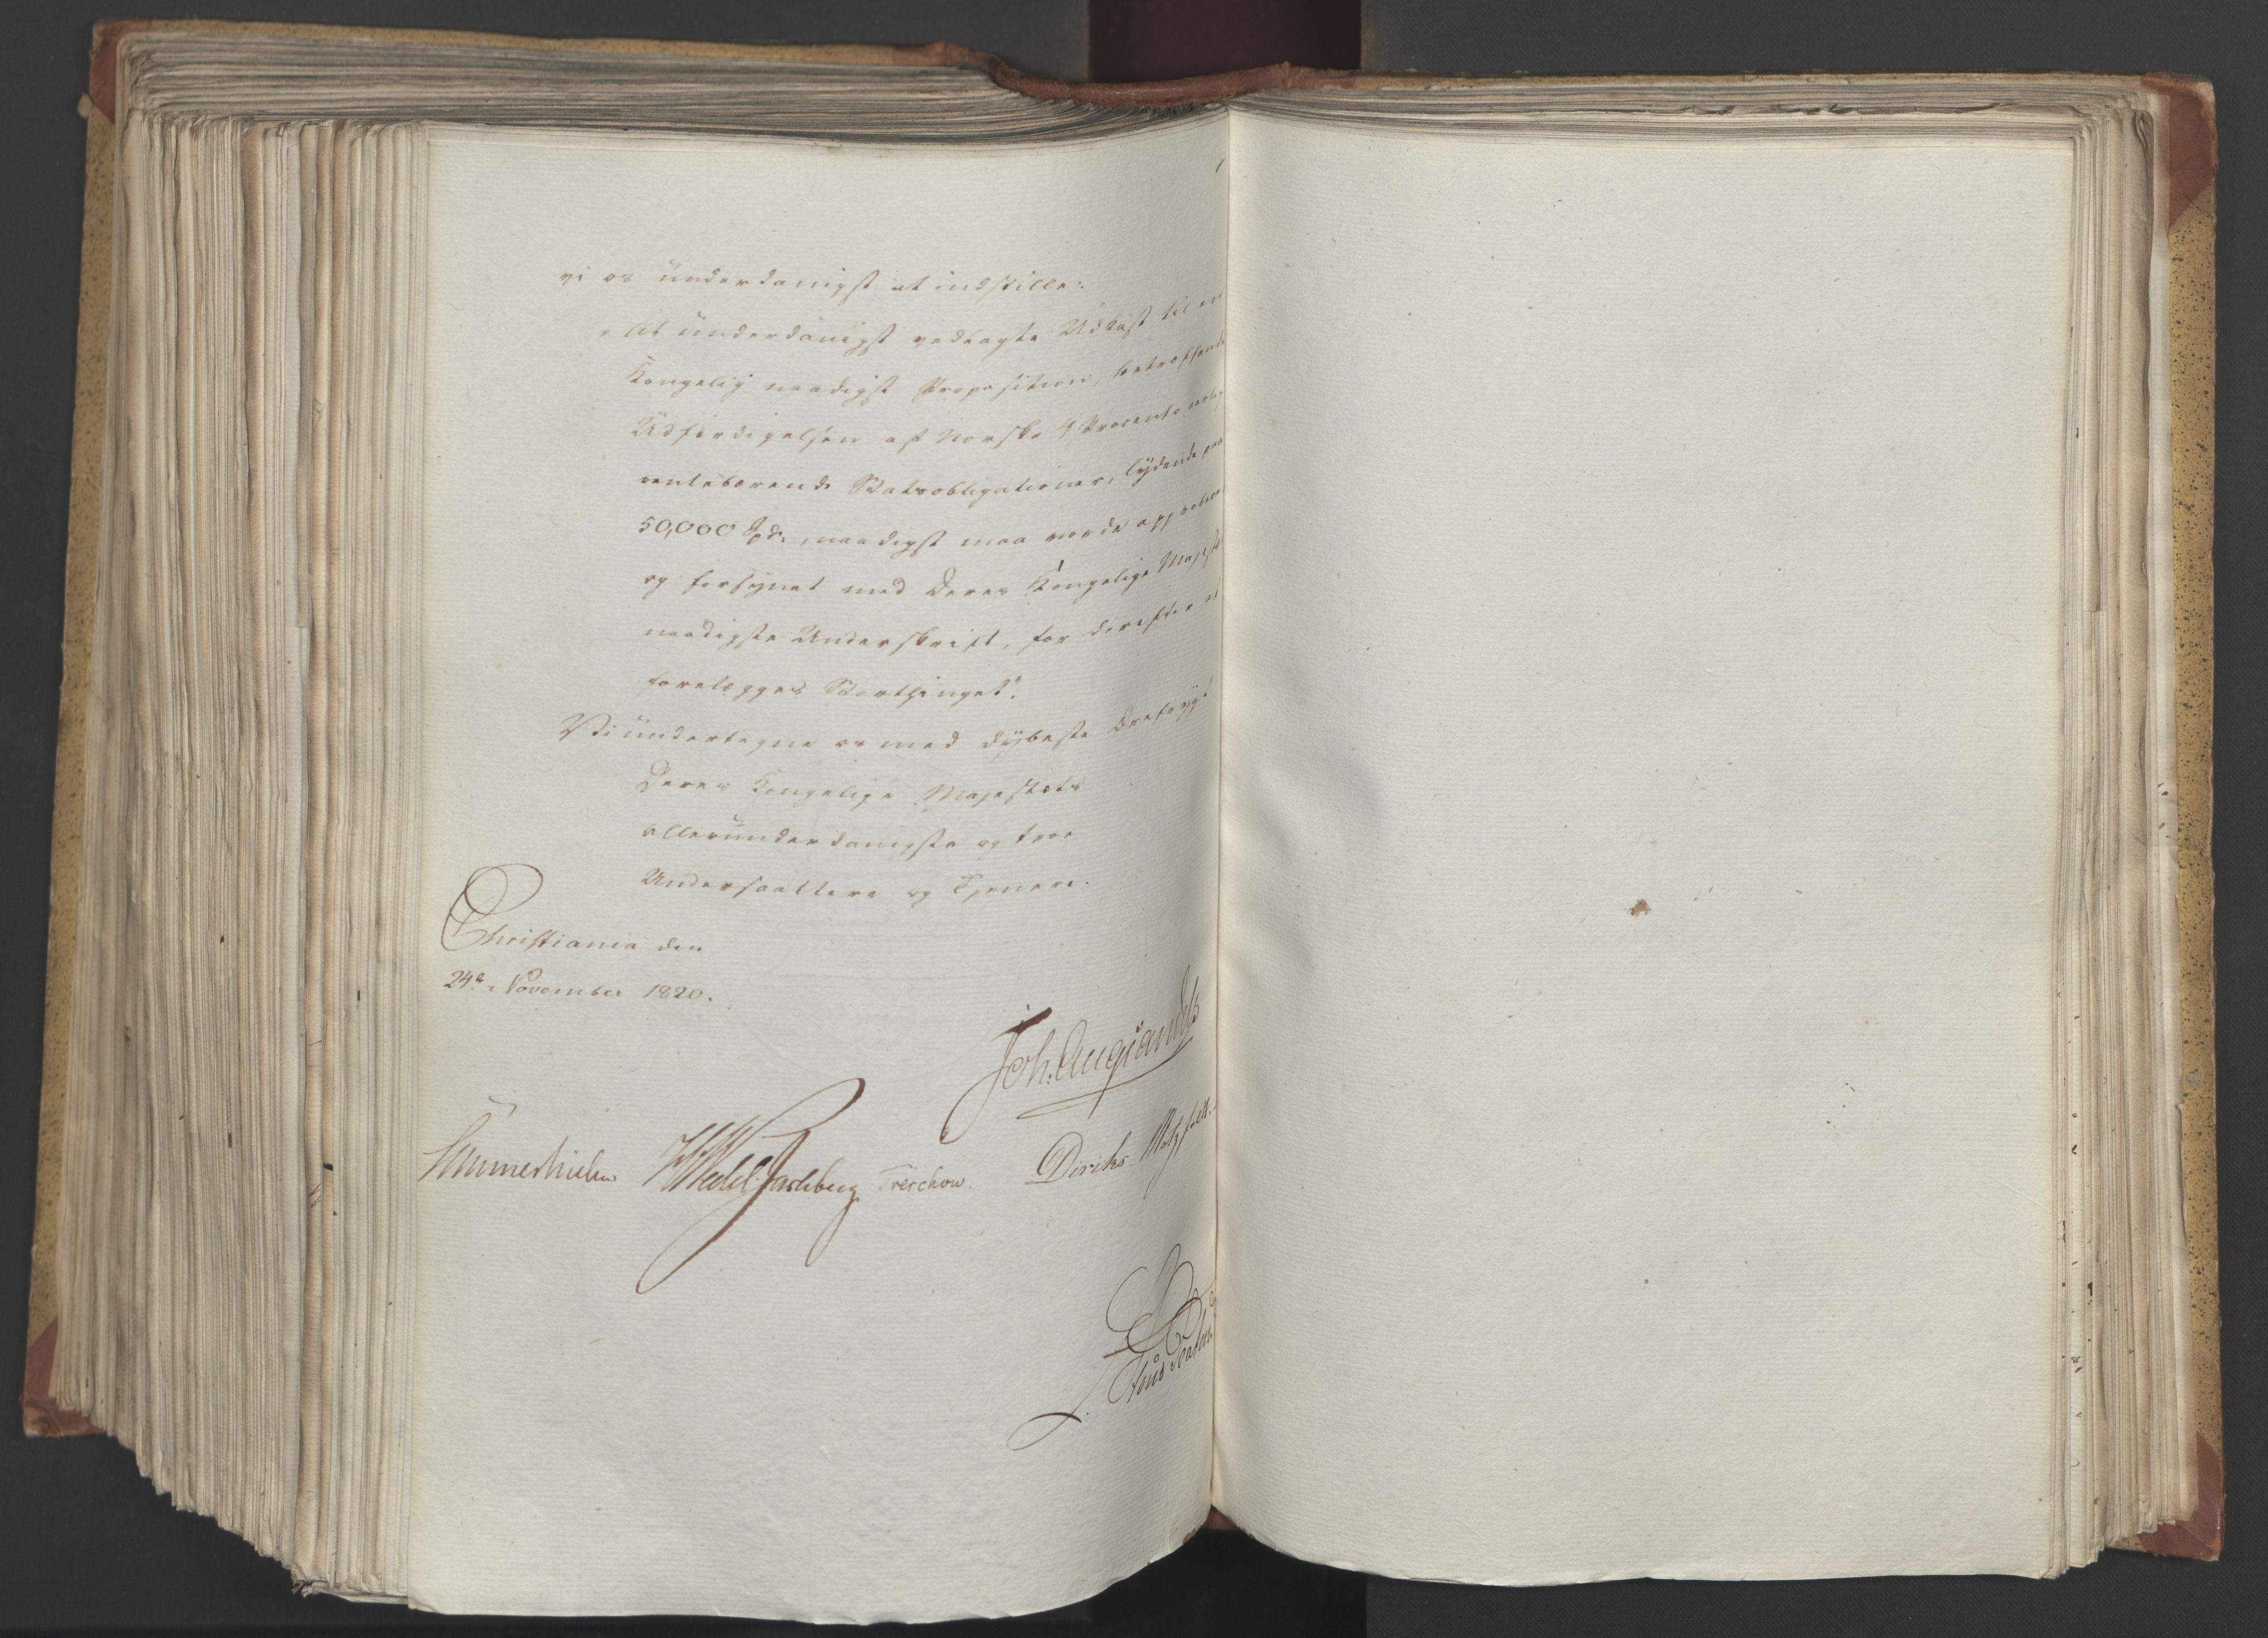 vi os underdanigst at indstille:
"At underdanigst vedlagte Udkast til en
Kongelig naadigst Proposition, betreffende
Udfærdigelsen af Norske 4 Procento aarlig
rentebærende Statsobligationer, lydende paa
50,000 Spd., naadigst maa vorde approberet
og forsynet med Deres Kongelige Majestæts
naadigste Underskrift, for derefter at
forelægges Storthinget".
Vi undertegne os med dybeste Ærefrygt
Deres Kongelige Majestæts
allerunderdanigste og troe
Undersaattere og Tjenere.
Christiania den
24de November 1820.
Joh. Aug: Sandels
Sommerhielm HWedel Jarlsberg Treschow. Diriks. Motzfeldt.